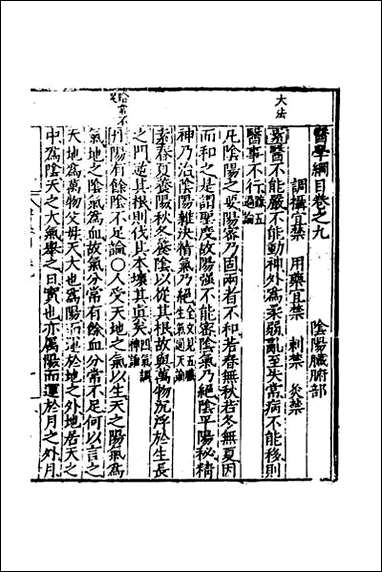 醫學綱目卷之九
陰陽臟腑部
調攝宜禁 用藥宜禁 刺禁 灸禁
大法
醫不能嚴不能動神外為柔弱亂至失常病不能移則
醫事不行
凡陰陽之要陽密乃固兩者不和若春無秋若冬無夏因
而和之是謂聖度故陽強不能密陰氣乃絕陰平陽秘精
神乃治陰陽離決精氣乃絕全文見五臟生氣通天論
春夏養陽秋冬養陰以從其根故與萬物沉浮於生長
之門逆其根則伐其本壞其真矣四氣調神論
陽有餘陰不足論○人受天地之氣以生天之陽氣為
氣地之陰氣為血故氣分常有餘血分常不足何以言之
天地為萬物父母天大也為陽而運於地之外地居天之
中為陰天之大氣舉之日實也亦屬陽而運於月之外月